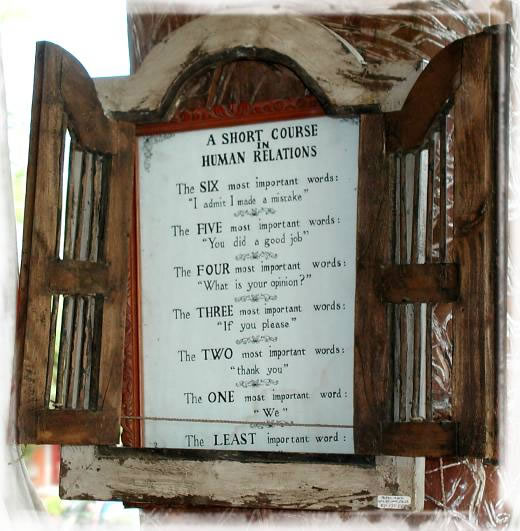 A SHORT COURSE
IN
HUMAN RELATIONS
The SIX most important words:
"I admit I made a mistake"
The FIVE most important words:
"You did a good job"
The FOUR most important words:
"What is your opinion?"
The THREE most important words:
"If you please"
The TWO most important words:
"thank you"
The ONE most important word:
"We"
The LEAST important word: